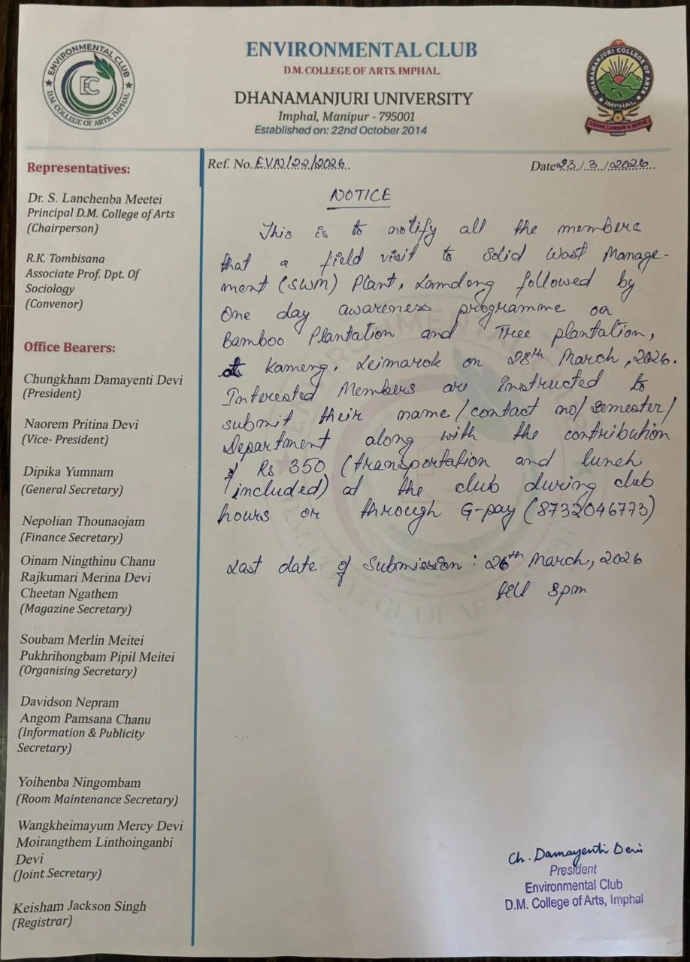 ENVIRONMENTAL CLUB
D.M. COLLEGE OF ARTS, IMPHAL.
DHANAMANJURI UNIVERSITY
Imphal, Manipur - 795001
Established on: 22nd October 2014
ENVIRONMENTAL CLUB
EC
D.M. COLLEGE OF ARTS, IMPHAL
DHANAMANJURI COLLEGE OF ARTS
IMPHAL
Representatives:
Dr. S. Lanchenba Meetei
Principal D.M. College of Arts
(Chairperson)
R.K. Tombisana
Associate Prof. Dpt. Of
Sociology
(Convenor)
Office Bearers:
Chungkham Damayenti Devi
(President)
Naorem Pritina Devi
(Vice- President)
Dipika Yumnam
(General Secretary)
Nepolian Thounaojam
(Finance Secretary)
Oinam Ningthinu Chanu
Rajkumari Merina Devi
Cheetan Ngathem
(Magazine Secretary)
Soubam Merlin Meitei
Pukhrihongbam Pipil Meitei
(Organising Secretary)
Davidson Nepram
Angom Pamsana Chanu
(Information & Publicity
Secretary)
Yoihenba Ningombam
(Room Maintenance Secretary)
Wangkheimayum Mercy Devi
Moirangthem Linthoinganbi
Devi
(Joint Secretary)
Keisham Jackson Singh
(Registrar)
Ref. No. EVN/22/2026 Date 23/3/2026
NOTICE
This is to notify all the members
that a field visit to Solid Wast Manage-
ment (SWM) Plant, Lamdeng followed by
one day awareness programme on
Bamboo Plantation and Tree plantation,
at Kameng, Leimarok on 28th March, 2026.
Interested Members are instructed to
submit their name/contact no/semester/
Department along with the contribution
of Rs 350 (transportation and lunch
included) at the club during club
hours or through G-pay (8732046773)
Last date of Submission : 26th March, 2026
till 3pm
Ch. Damayenti Devi
President
Environmental Club
D.M. College of Arts, Imphal